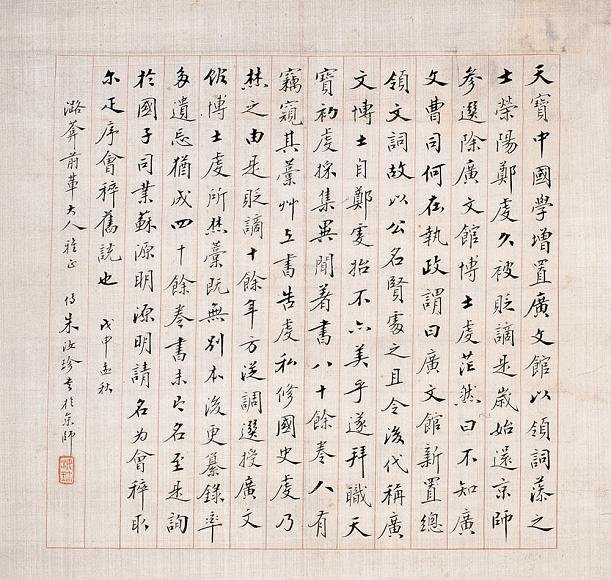 天寶中國學增置廣文館以領詞藻之
士滎陽鄭虔久被貶謫是歲始還京師
參選除廣文館博士虔茫然曰不知廣
文曹司何在執政謂曰廣文館新置總
領文詞故以公名賢處之且令後代稱廣
文博士自鄭虔始不亦美乎遂拜職天
寶初虔採集異聞著書八十餘卷人有
竊窺其藁草上書告虔私修國史虔乃
焚之由是貶謫十餘年方從調選授廣文
館博士虔所焚藁既無別本後更纂錄率
多遺忘猶成四十餘卷書未有名至是詢
於國子司業蘇源明源明請名為會稡取
尔疋序會稡舊說也 戊申孟秋
潞葊前輩大人雅正 侍朱汝珍書於京師